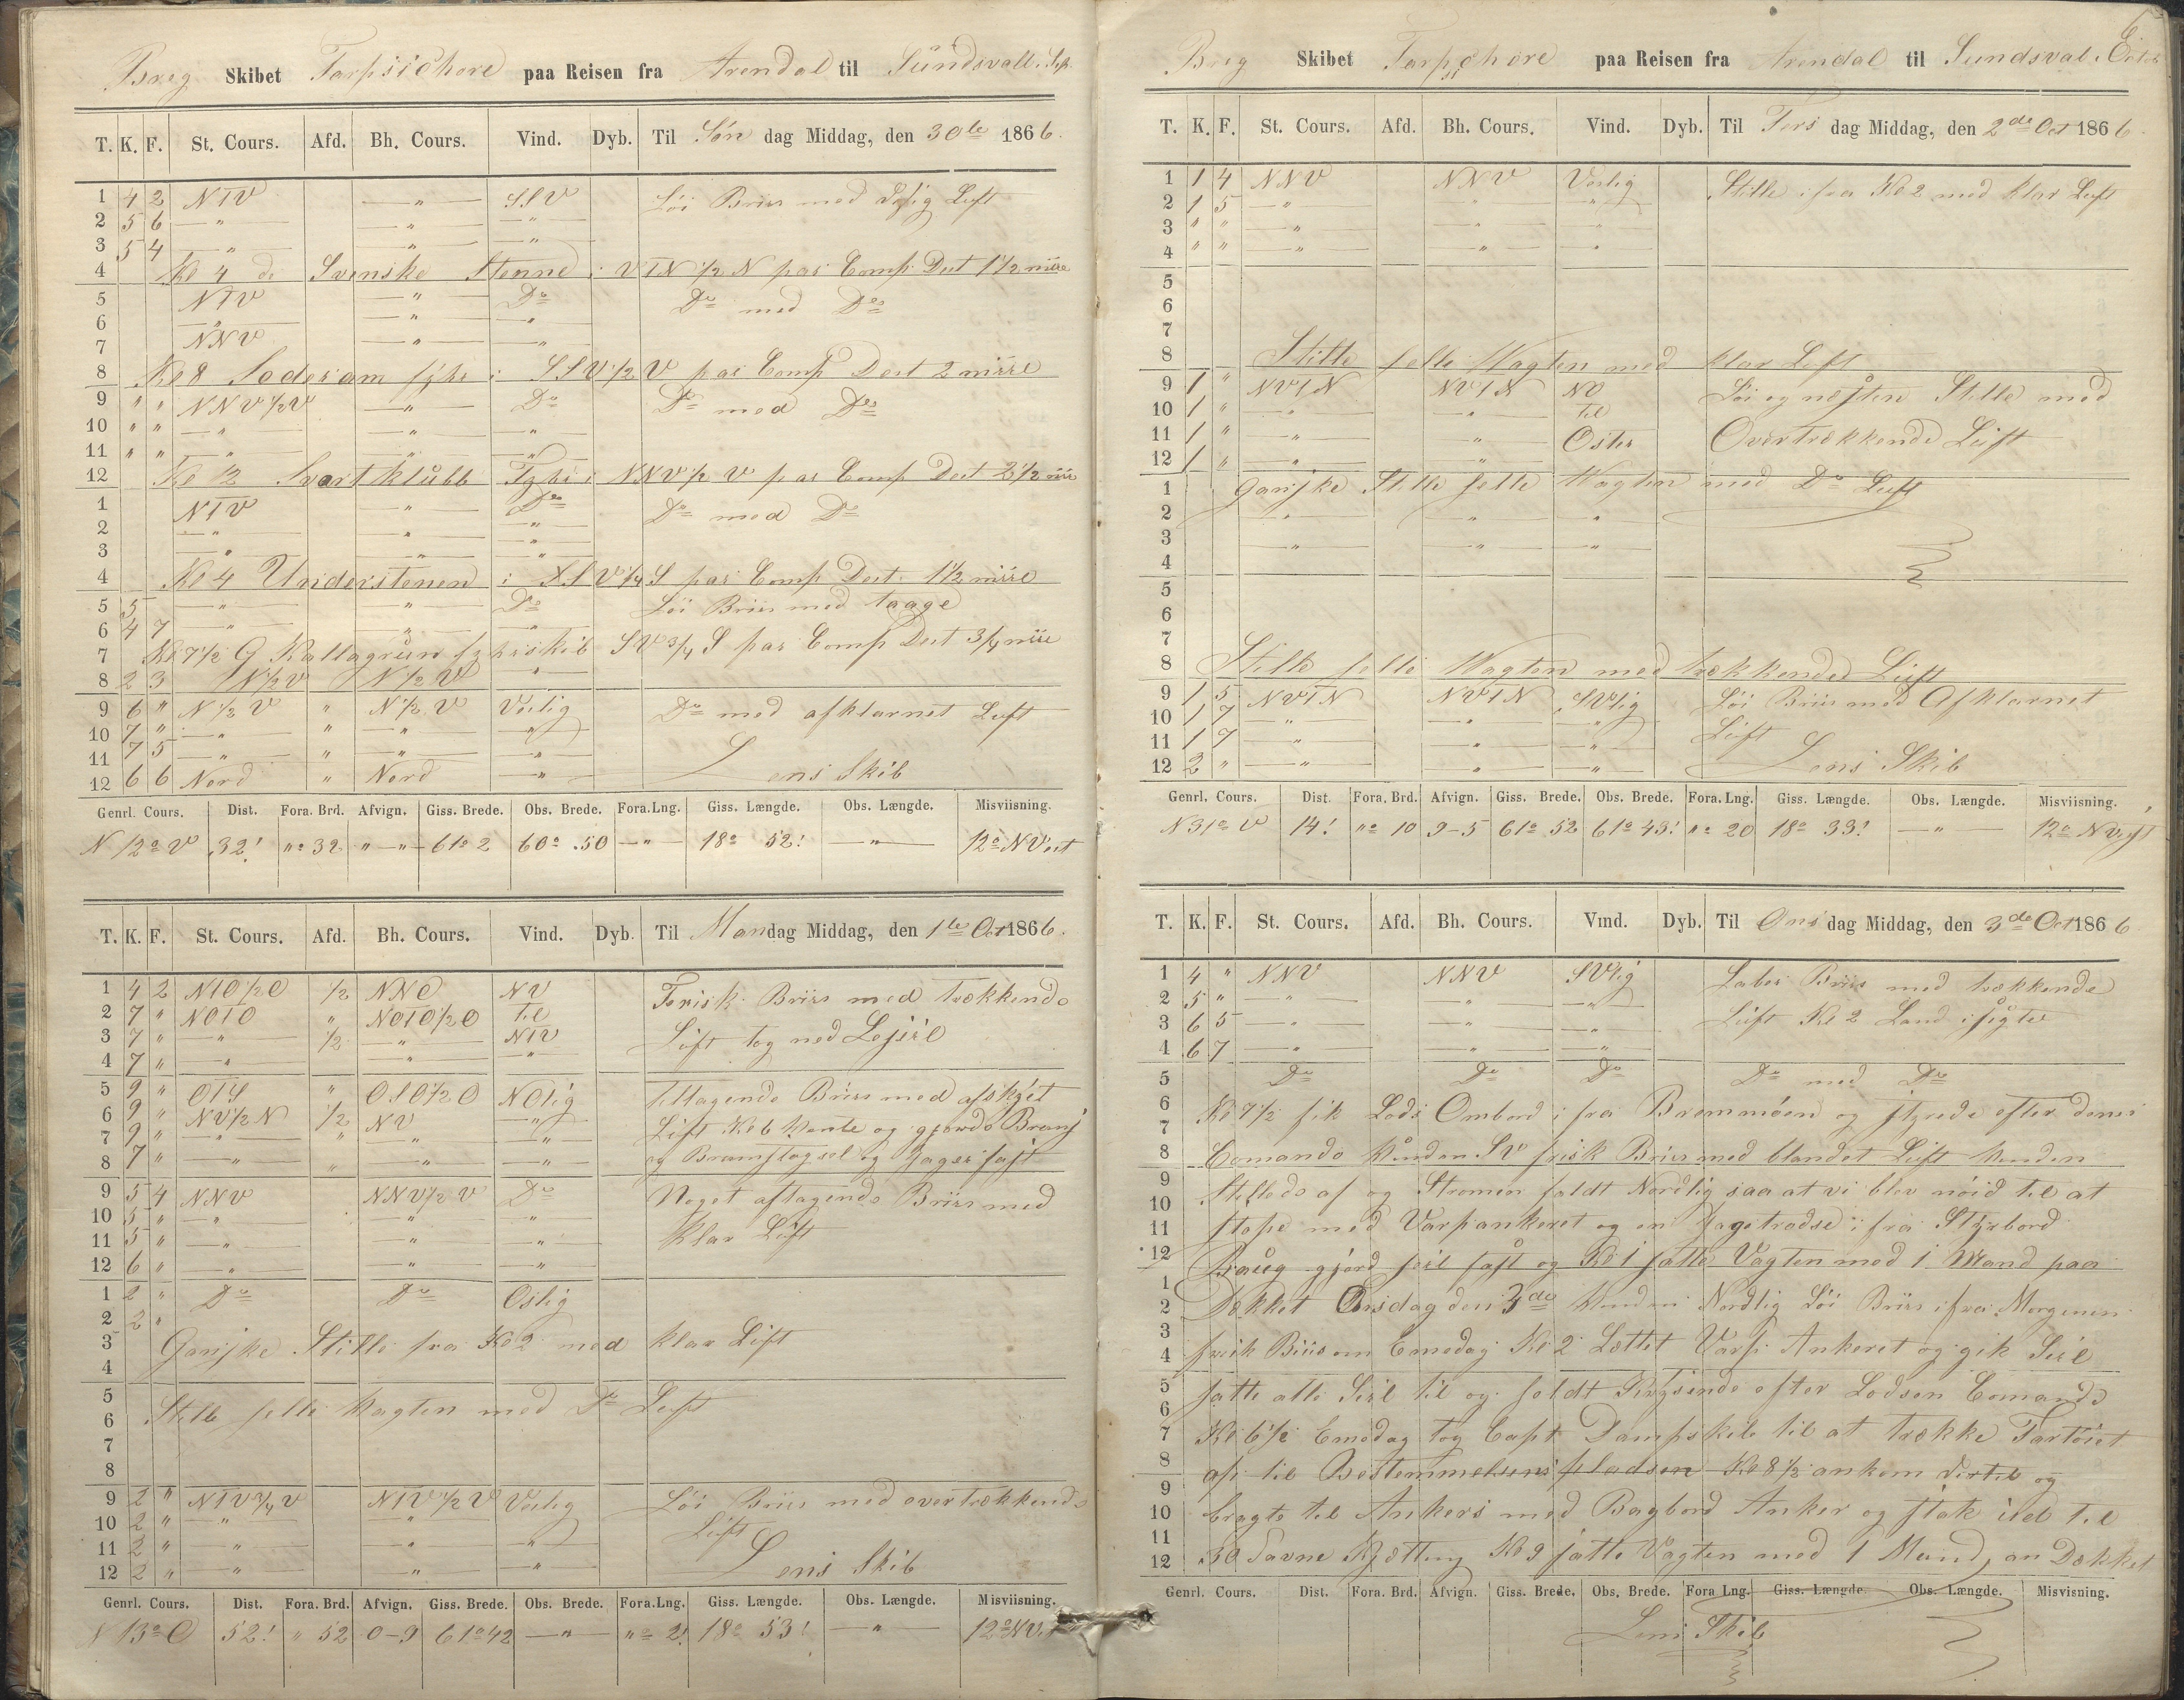 Brig Skibet Tarpsichore paa Reisen fra Arendal til Sündsvall. Sep.
T. K. F. St. Cours. Afd. Bh. Cours. Vind. Dyb. Til Søn dag Middag, den 30te 1866.
1 4 2 NTV — " — SSV Löi Briis med Luft
2 5 6 — " — — " — — " —
3 5 4 — " — — " — — " —
4 Kl 4 de Svenske i VTN ½ N par Comp Dest 1½
5 NTV — " — Do Do med Do
6 — " — — " — — " —
7 NNV — " — — " —
8 Kl 8 Soderam i SSV ½ V par Comp Dest 2
9 " " NNV ½ V — " — Do Do med Do
10 " " — " — — " — — " —
11 " " — " — — " — — " —
12 Kl 12 Svartklübb i NNV ½ V par Comp Dest 2½
1 NTV — " — Do Do med Do
2 — " — — " — — " —
3 — " — — " — — " —
4 Kl 4 Understenen i SSV ¼ S par Comp Dest 1½
5 5 — " — — " — Do Löi Briis med taage
6 4 7 — " — — " — — " —
7 Kl 7½ G Kallagrün SV ¾ S par Comp Dest ¾
8 2 3 N ½ V N ½ V — " —
9 6 " N ½ V " N ½ V Veslig Do med afklarnet Luft
10 7 " — " — " — " — — " —
11 7 5 — " — " — " — — " —
12 6 6 Nord " Nord — " — Lens Skib
Genrl. Cours. Dist. Fora. Brd. Afvign. Giss. Brede. Obs. Brede. Fora.Lng. Giss. Længde. Obs. Længde. Misviisning.
N 12o V 32! "o 32 " — " — 61o 2 60o .50 — " — 18o 52! — " — 12o NVest
T. K. F. St. Cours. Afd. Bh. Cours. Vind. Dyb. Til Mandag Middag, den 1te Oct 1866.
1 4 2 NTO ½ O ½ NNO NV Frisk Briis med trækkende
2 7 " NOTO " NOTO ½ O Til Lüft tog ned
3 7 " — " — ½ — " — NTV
4 7 " — " — — " — — " —
5 9 " OTS " OSO ½ O NOlig tiltagende Briis med
6 9 " NV ½ N ½ NV — " — Lüft Kl 6 og gjorde Bram
7 9 " — " — " — " — — " — og Bramstagsel og Jager fast
8 7 " — " — " — " — — " —
9 5 4 NNV NNV ½ V Do Noget aftagende Briis med
10 5 " — " — — " — — " — Klar Lüft
11 5 " — " — — " — — " —
12 6 " — " — — " — — " —
1 2 " Do Do Oslig
2 2 "
3 Ganske Stille fra Kl 2 med klar Lüft
4
5 Stille Vagten med Do Luft
6
7
8
9 2 " NTV ¾ V NTV ½ V Veslig Löi Briis med overtrækkende
10 2 " — " — — " — Lüft
11 2 " — " — — " — — " —
12 2 " — " — — " — — " — Lens Skib
Genrl. Cours. Dist. Fora. Brd. Afvign. Giss. Brede. Obs. Brede. Fora.Lng. Giss. Længde. Obs. Længde. Misviisning.
N 13o O 52! " 52 0-9 61o 42 — " — "o 2! 18o 53! — " — 12o NV
Brig Skibet paa Reisen fra Arendal til Sundsval.
T. K. F. St. Cours. Afd. Bh. Cours. Vind. Dyb. Til Tirs dag Middag, den 2de Oct 1866.
1 1 4 NNV NNV Veslig Stille ifra Kl 2 med klar Luft
2 1 5 — " — " "
3 " " — " — " "
4 " " — " — " "
5
6
7
8 Stille Vagten med klar Luft
9 1 " NVTN NVTN NO Löi og næsten Stille med
10 1 " — " — — " — Til Overtrækkende Lüft
11 1 " — " — — " — Oster
12 1 " — " — — " —
1 Ganske Stille Vagten med Do Luft
2 — " — " "
3 — " — — " — — " —
4
5
6
7
8 Stille Vagten med trækkende Lüft
9 1 5 NVTN NVTN SVlig Löi Briis med Afklarnet
10 1 7 — " — — " — — " — Lüft
11 1 7 — " — — " — — " —
12 2 " — " — — " — — " — Lens Skib
Genrl. Cours. Dist. Fora. Brd. Afvign. Giss. Brede. Obs. Brede. Fora. Lng. Giss. Længde. Obs. Længde. Misviisning.
N 31o V 14! "o 10 9-5 61o 52 61o 43! "o 20 18o 33! — " — 12o NVest
T. K. F. St. Cours. Afd. Bh. Cours. Vind. Dyb. Til Ons dag Middag, den 3de Oct 1866
1 4 " NNV NNV SVlig Laber Briis med trækkende
2 5 " — " — — " — — " — Lüft Kl 2 Land isigte
3 6 5 — " — — " — — " —
4 6 7 — " — — " — — " —
5 Do Do Do Do med Do
6 Kl 7½ fik Lods Ombord ifra Bremmöen og styrede efter dens
7
8 Comando Vinden SV frisk Briis med blandet Lüft Vinden
9 Stillede af og Strömen faldt Nordlig saa at vi blev nöid til at
10
11 med Varpankeret og en ifra Styrbord
12 Baug gjord seil fast og Kl 1 satte Vagten med 1 Mand paa
1
2 Dækket Onsdag den 3de Vinden Nordlig Löi Briis ifra Morgenen
3
4 frisk Briis om Emedag Kl 2 Lettet Varp Ankeret og gik Seil
5 satte alle Seil til og efter Lodsen Comando
6
7 Kl 6½ Emedag tog Capt Dampskib til at trække Fartöiet
8 op til Bestemmelsens pladsen Kl 8½ ankom dertil og
9
10 bragte til Ankers med Bagbord Anker og stak üd til
11
12 30 Favne Kjetting Kl 9 satte Vagten med 1 Mand paa Dækket
Genrl. Cours. Dist. Fora. Brd. Afvign. Giss. Brede. Obs. Brede. Fora Lng. Giss. Længde. Obs. Længde. Misvisning.
Lens Skib